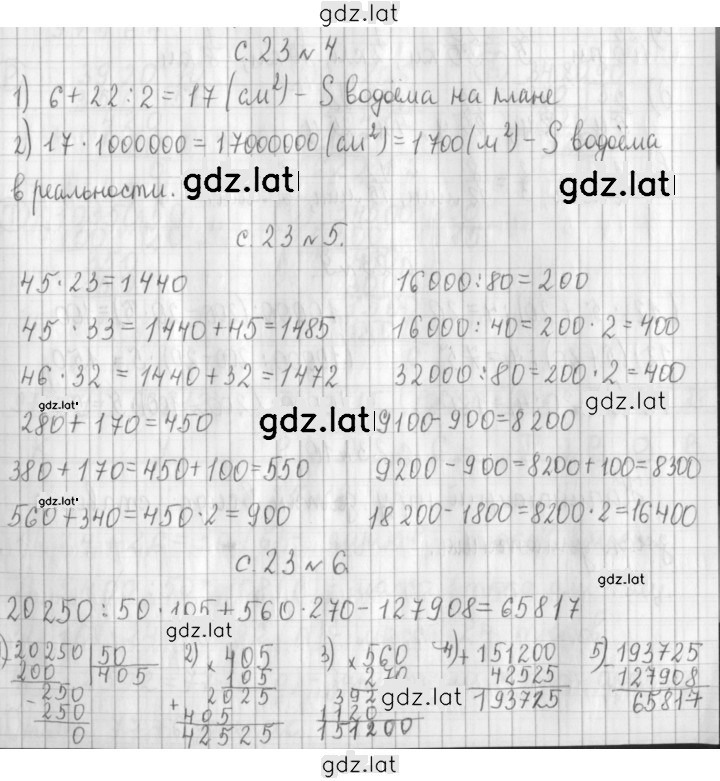 gdz.lat
с. 23 № 4.
1) 6 + 22 : 2 = 17 (см²) – S водоёма на плане
2) 17 · 1000000 = 17000000 (см²) = 1700 (м²) – S водоёма
в реальности.
gdz.lat gdz.lat
с. 23 № 5.
45 · 23 = 1440 16000 : 80 = 200
45 · 33 = 1440 + 45 = 1485 16000 : 40 = 200 · 2 = 400
46 · 32 = 1440 + 32 = 1472 32000 : 80 = 200 · 2 = 400
gdz.lat gdz.lat
280 + 170 = 450 gdz.lat 9100 – 900 = 8200
380 + 170 = 450 + 100 = 550 9200 – 900 = 8200 + 100 = 8300
gdz.lat
560 + 340 = 450 · 2 = 900 18200 – 1800 = 8200 · 2 = 16400
с. 23 № 6
gdz.lat
20250 : 50 · 105 + 560 · 270 – 127908 = 65817
gdz.lat
1) 20250 50 2) 405 3) 560 4) 151200 5) 193725
200 405 × 105 × 270 + 42525 – 127908
– 250 2025 392 gdz.lat 193725 65817
250 + 405 1120
0 42525 151200
gdz.lat